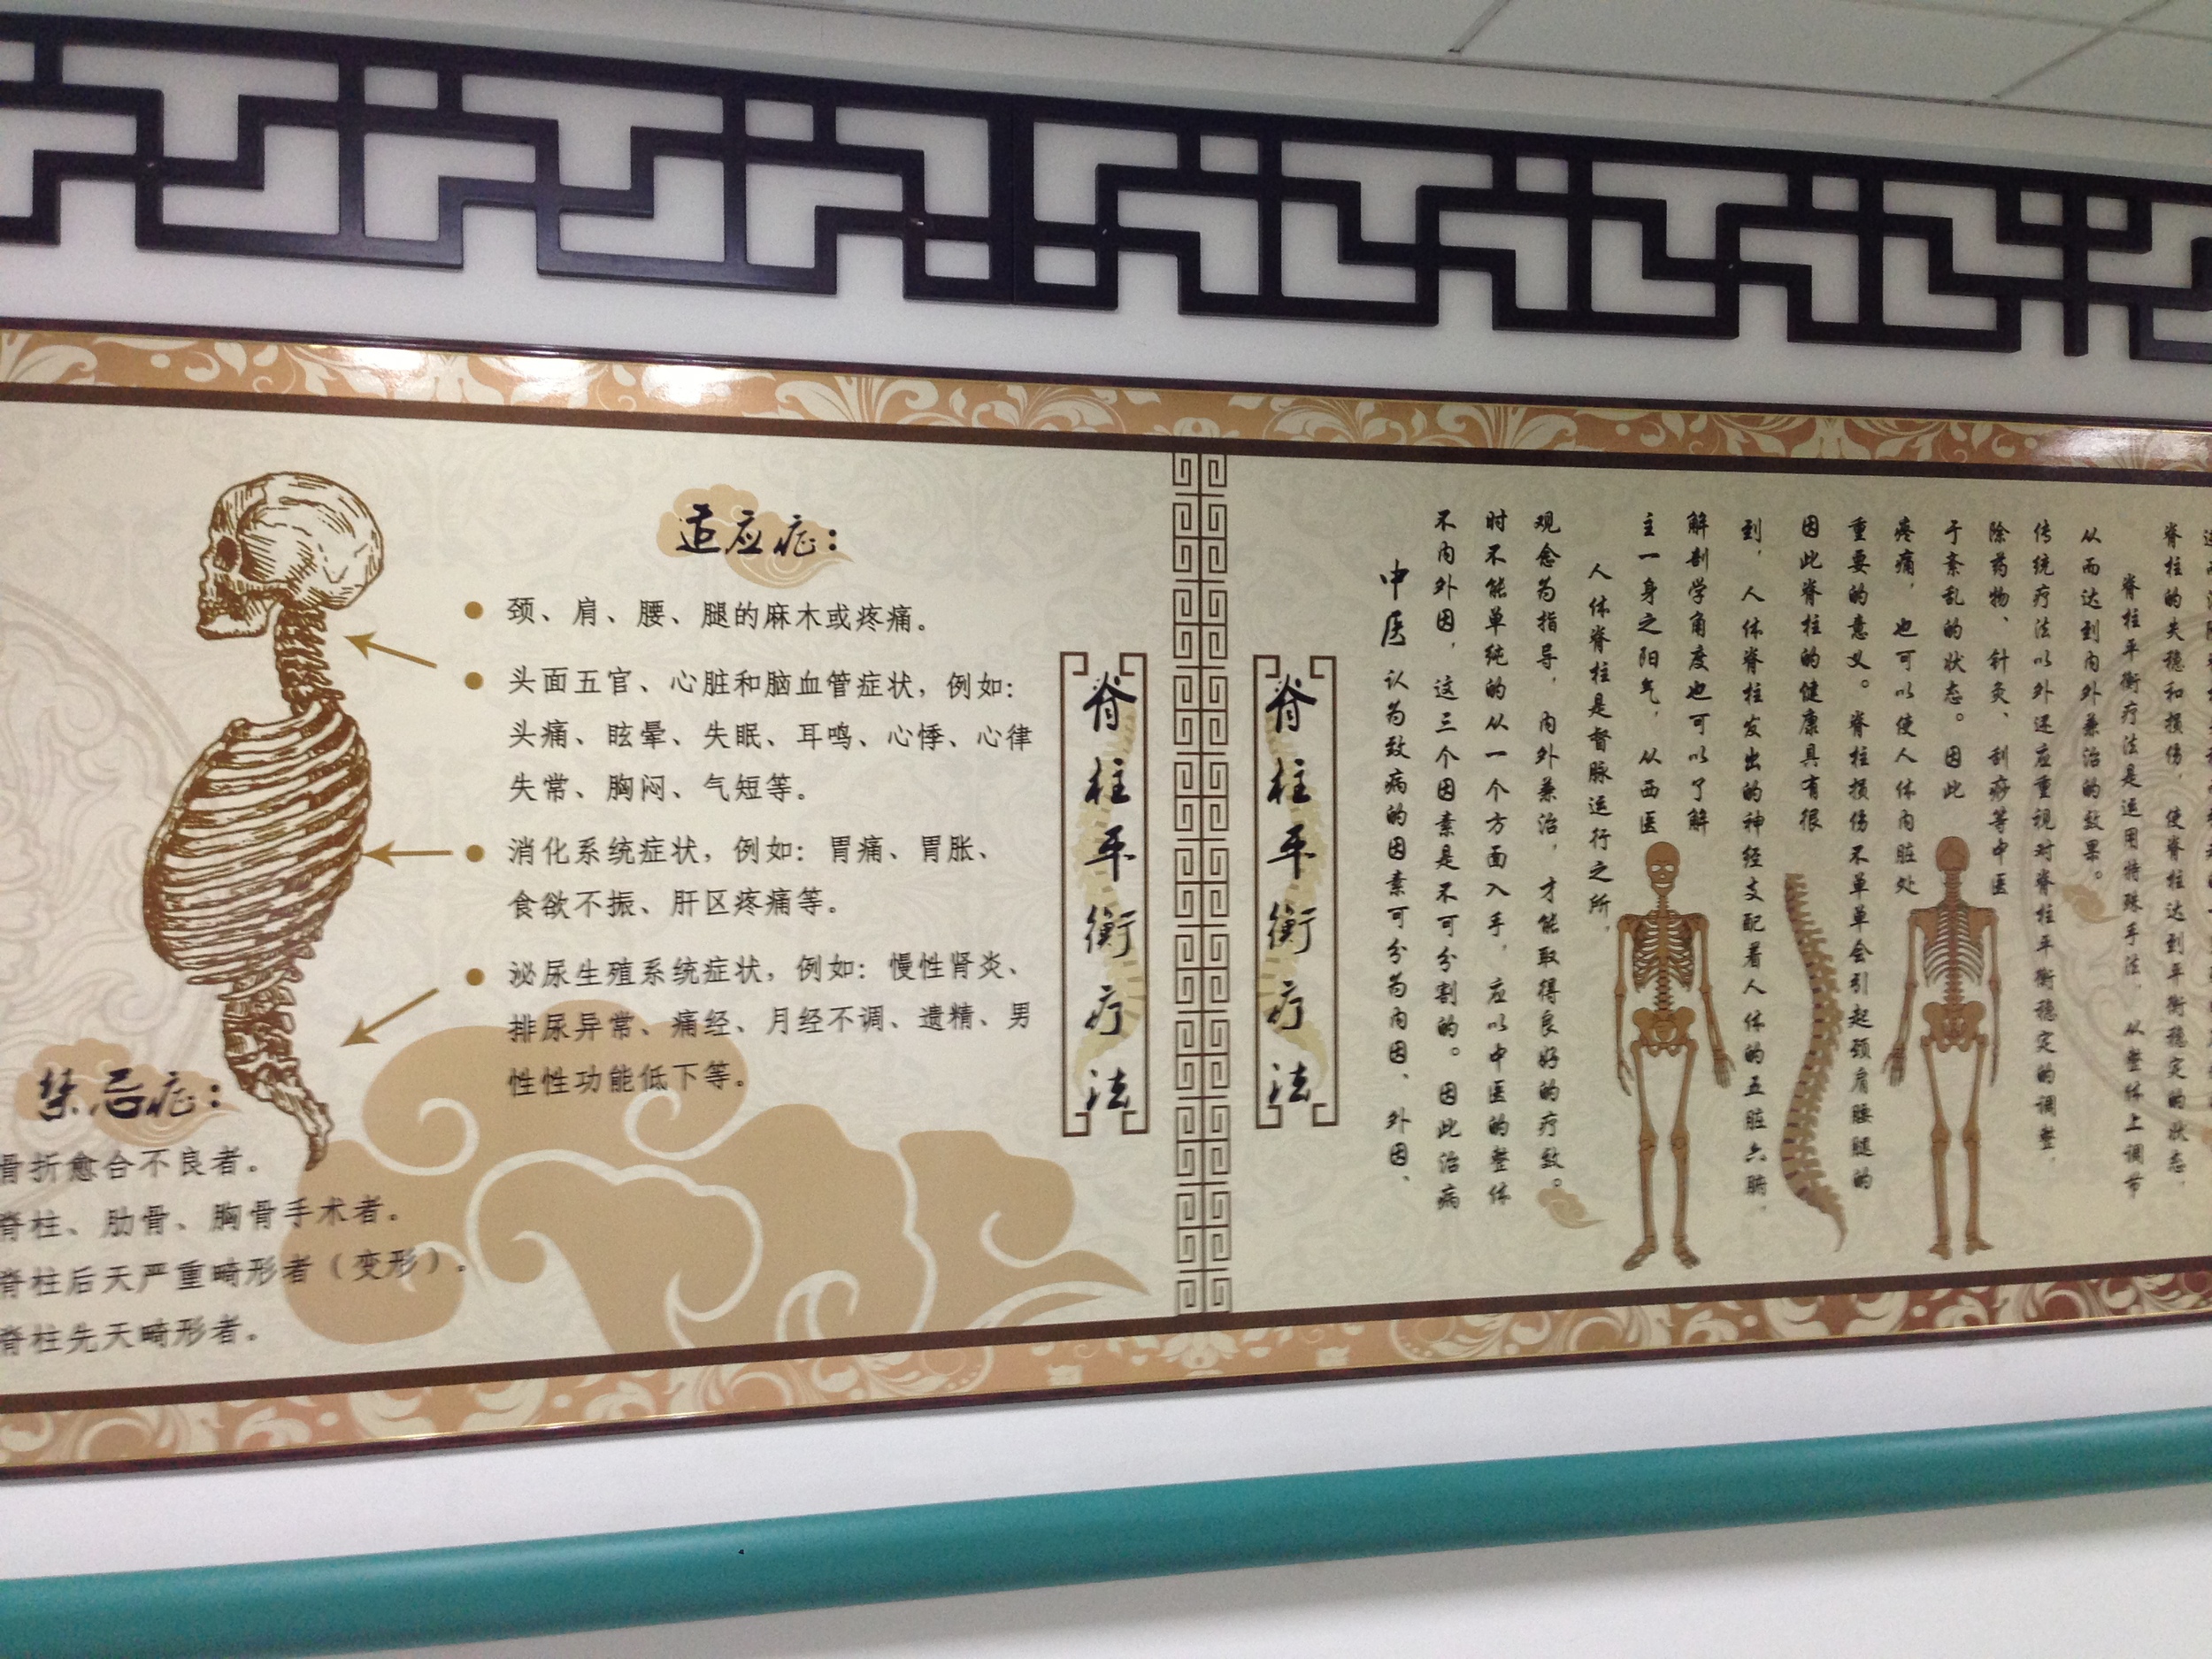 适应症：
颈、肩、腰、腿的麻木或疼痛。
头面五官、心脏和脑血管症状，例如：
头痛、眩晕、失眠、耳鸣、心悸、心律
失常、胸闷、气短等。
消化系统症状，例如：胃痛、胃胀、
食欲不振、肝区疼痛等。
泌尿生殖系统症状，例如：慢性肾炎、
排尿异常、痛经、月经不调、遗精、男
性性功能低下等。
禁忌症：
骨折愈合不良者。
脊柱、肋骨、胸骨手术者。
脊柱后天严重畸形者（变形）。
脊柱先天畸形者。
脊柱平衡疗法
脊柱平衡疗法
中医认为致病的因素可分为内因、外因、
不内外因，这三个因素是不可分割的。因此治病
时不能单纯的从一个方面入手，应以中医的整体
观念为指导，内外兼治，才能取得良好的疗效。
人体脊柱是督脉运行之所，
主一身之阳气，从西医
解剖学角度也可以了解
到，人体脊柱发出的神经支配着人体的五脏六腑，
因此脊柱的健康具有很
重要的意义。脊柱损伤不单单会引起颈肩腰腿的
疼痛，也可以使人体内脏处
于紊乱的状态。因此
除药物、针灸、刮痧等中医
传统疗法以外还应重视对脊柱平衡稳定的调整，
从而达到内外兼治的效果。
脊柱平衡疗法是运用特殊手法，从整体上调节
脊柱的失稳和损伤，使脊柱达到平衡稳定的状态，